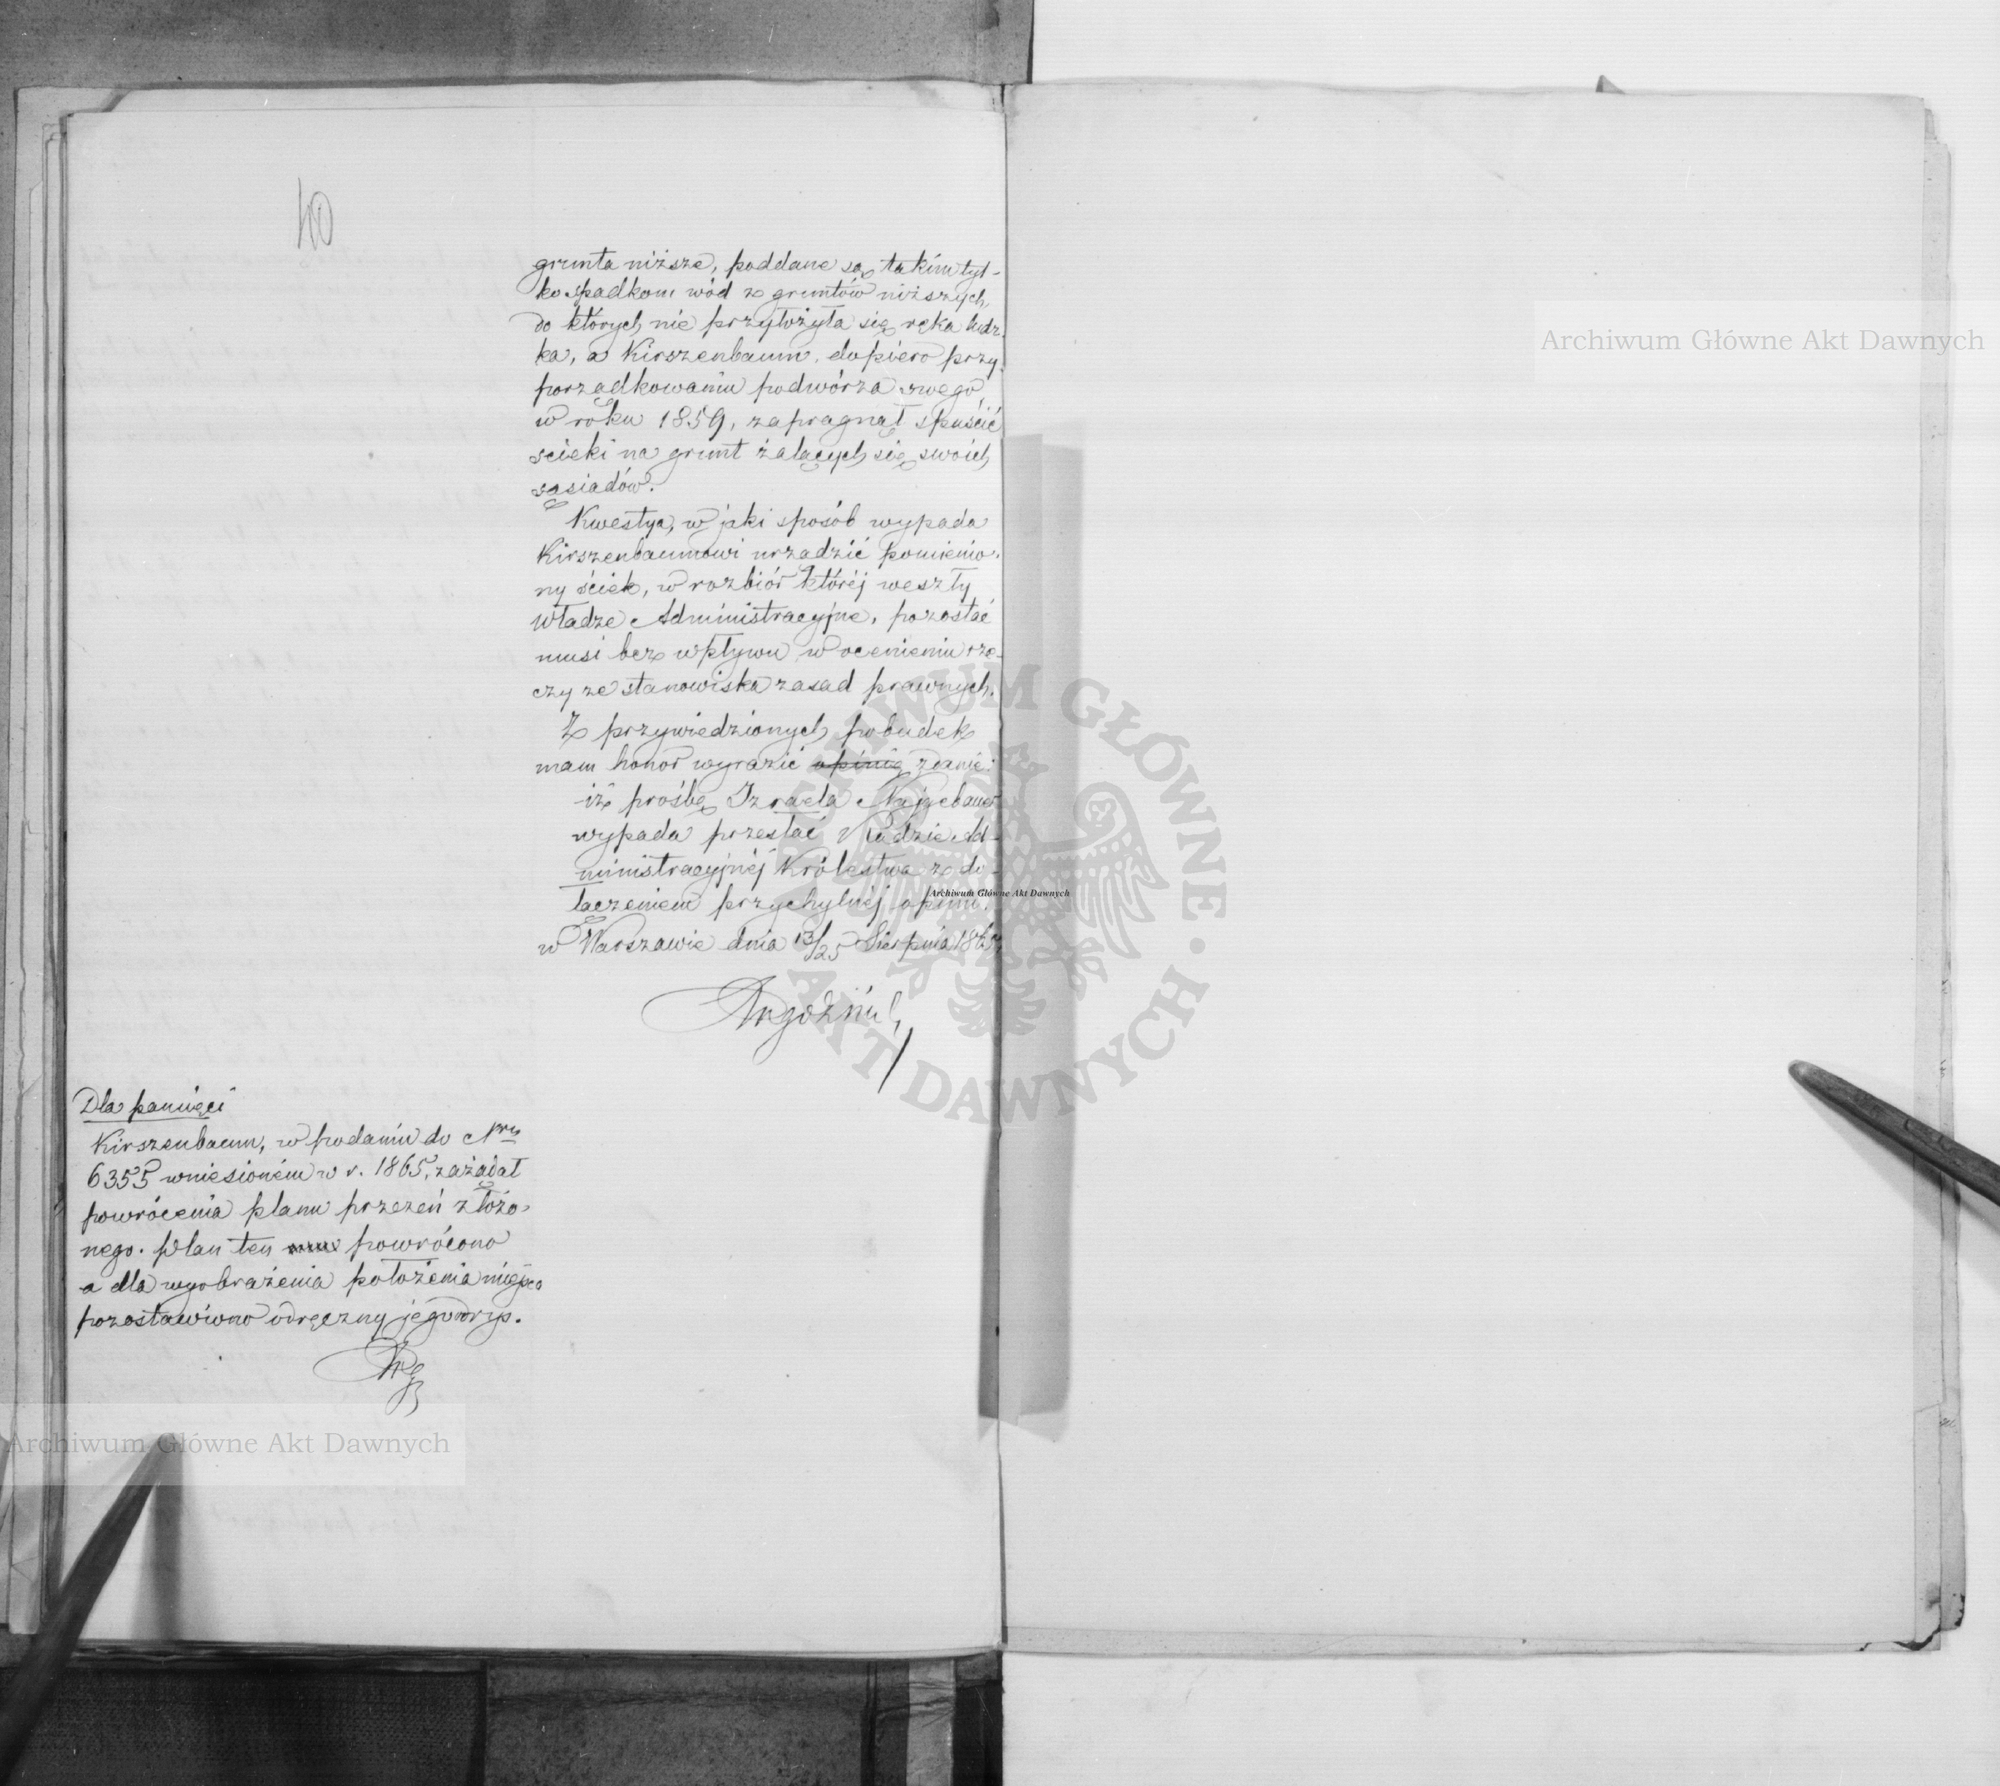 40
grunta niższe, poddane są takim tyl-
ko spadkom wód z gruntów niższych
do których nie przyłożyła się ręka ludz-
ka, a Kirszenbaum dopiero przy
porządkowaniu podwórza swego,
w roku 1859, zapragnął spuścić
ścieki na grunt żalących się swoich
sąsiadów.
Kwestya, w jaki sposób wypada
Kirszenbaumowi urządzić pomienio-
ny ściek, w rozbiór któréj weszły
władze Administracyjne, pozostać
musi bez wpływu w ocenieniu rze-
czy ze stanowiska zasad prawnych.
Z przywiedzionych pobudek
mam honor wyrazić opinię zdanie:
iż prośbę Izraela Najgebauer
wypada przesłać Radzie Ad-
ministracyjnéj Królestwa z do-
łączeniem przychylnéj opinii.
w Warszawie dnia 13/25 Sierpnia
Dla pamięci
Kirszenbaum, w podaniu do Nru
6355 wniesioném w r. 1865, zażądał
powrócenia planu przezeń złożo-
nego. Plan ten powrócono
a dla wyobrażenia położenia miejsca
pozostawiono odręczny jego odrys.
Archiwum Główne Akt Dawnych
Archiwum Główne Akt Dawnych
Archiwum Główne Akt Dawnych
ARCHIWUM GŁÓWNE · AKT DAWNYCH ·